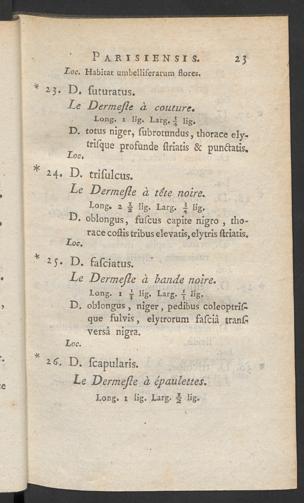 PARISIENSIS. 23
Loc. Habitat umbelliferarum flores.
* 23. D. suturatus.
Le Dermeste à couture.
Long. 1 lig. Larg. ¼ lig.
D. totus niger, subrotundus, thorace ely-
trisque profunde striatis & punctatis.
Loc.
* 24. D. trisulcus.
Le Dermeste à tête noire.
Long. 2 lig. Larg. lig.
D. oblongus, fuscus capite nigro, tho-
race costis tribus elevatis, elytris striatis.
Loc.
* 25. D. fasciatus.
Le Dermeste à bande noire.
Long. 1 lig. Larg. lig.
D. oblongus, niger, pedibus coleoptris-
que fulvis, elytrorum fasciâ trans-
versâ nigra.
Loc.
* 26. D. scapularis.
Le Dermeste à épaulettes.
Long. 1 lig. Larg. lig.